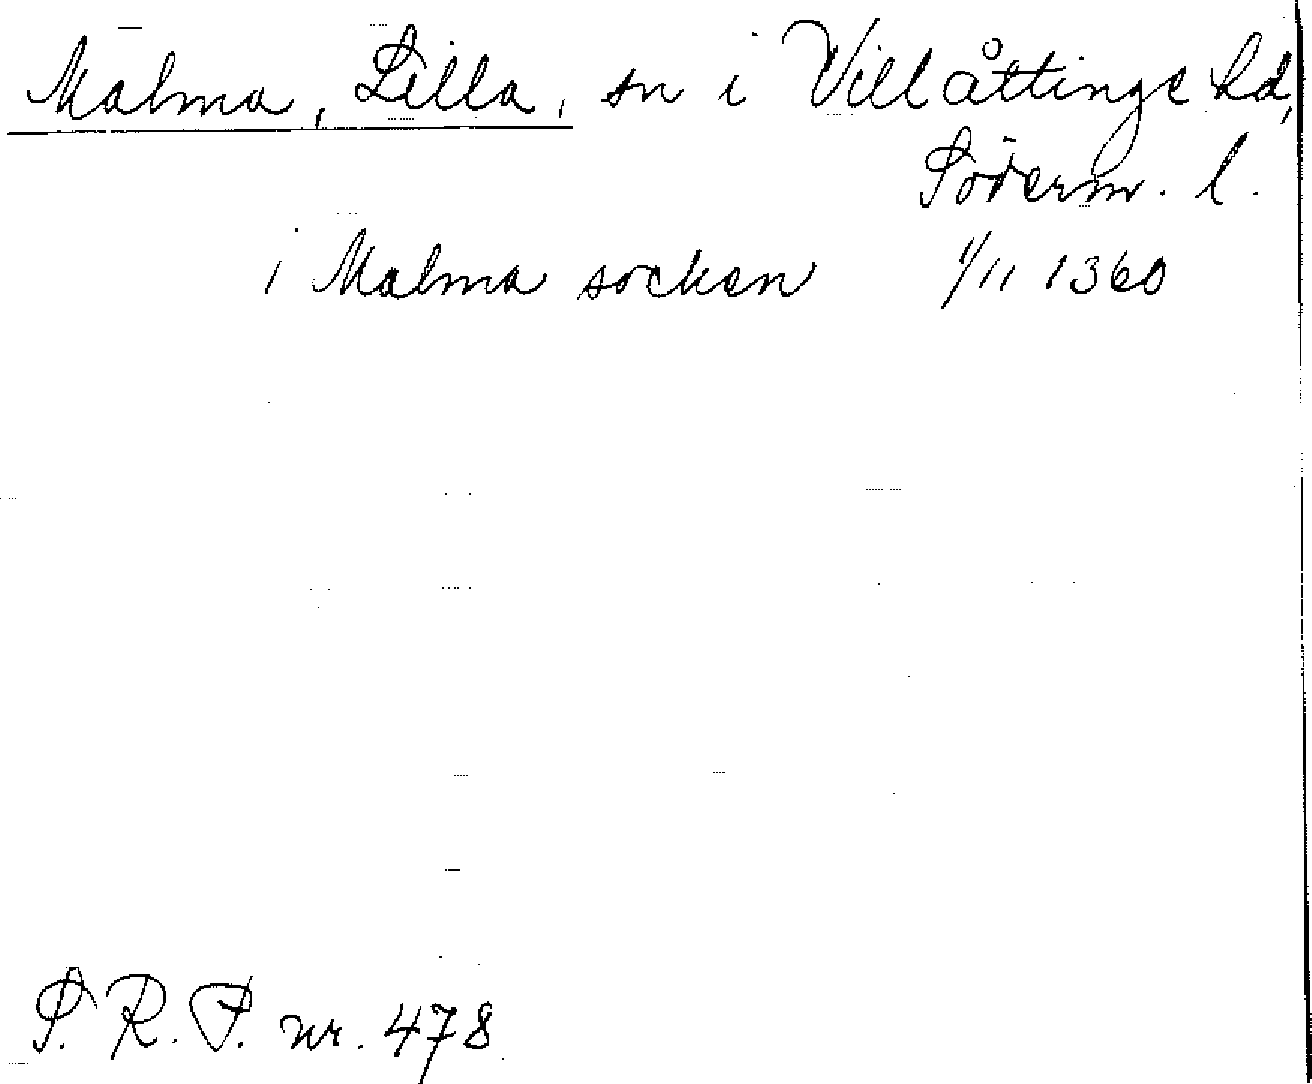 Malma, Lilla, sn i Villåttinge hd,
Söderm. l.
i Malma socken 1/11 1360
S. R. P. nr. 478